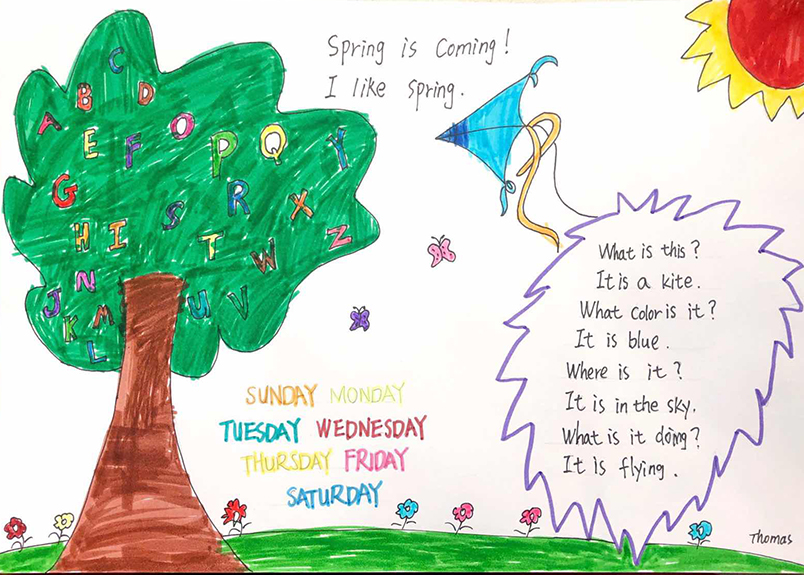 Spring is Coming!
I like spring.
A B C D
E F O P Q Y
G S R X
H I T W Z
J N M U V
K
L
What is this?
It is a kite.
What color is it?
It is blue.
Where is it?
It is in the sky.
What is it doing?
It is flying.
SUNDAY MONDAY
TUESDAY WEDNESDAY
THURSDAY FRIDAY
SATURDAY
Thomas